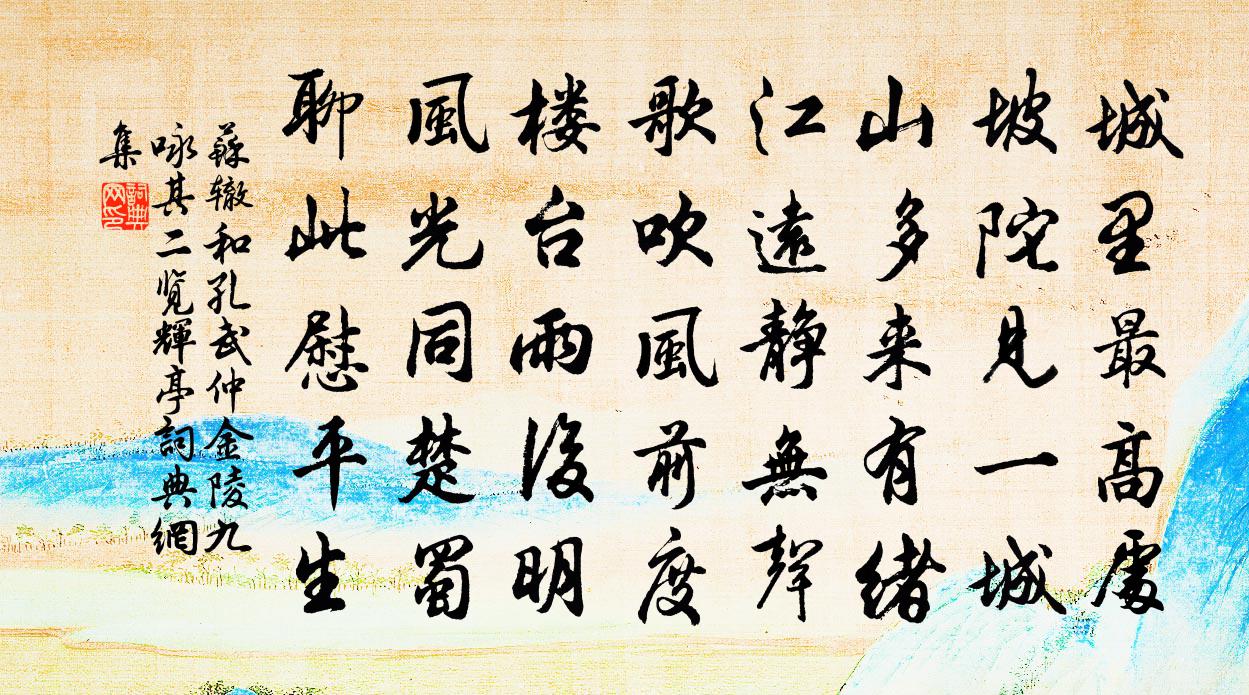 城里最高處
坡陀見一城
山多来有緒
江遠静無聲
歌吹風前度
楼台雨後明
風光同楚蜀
聊此慰平生
蘇辙和孔武仲金陵九
咏其二览輝亭詞典網
集
詞典
网印